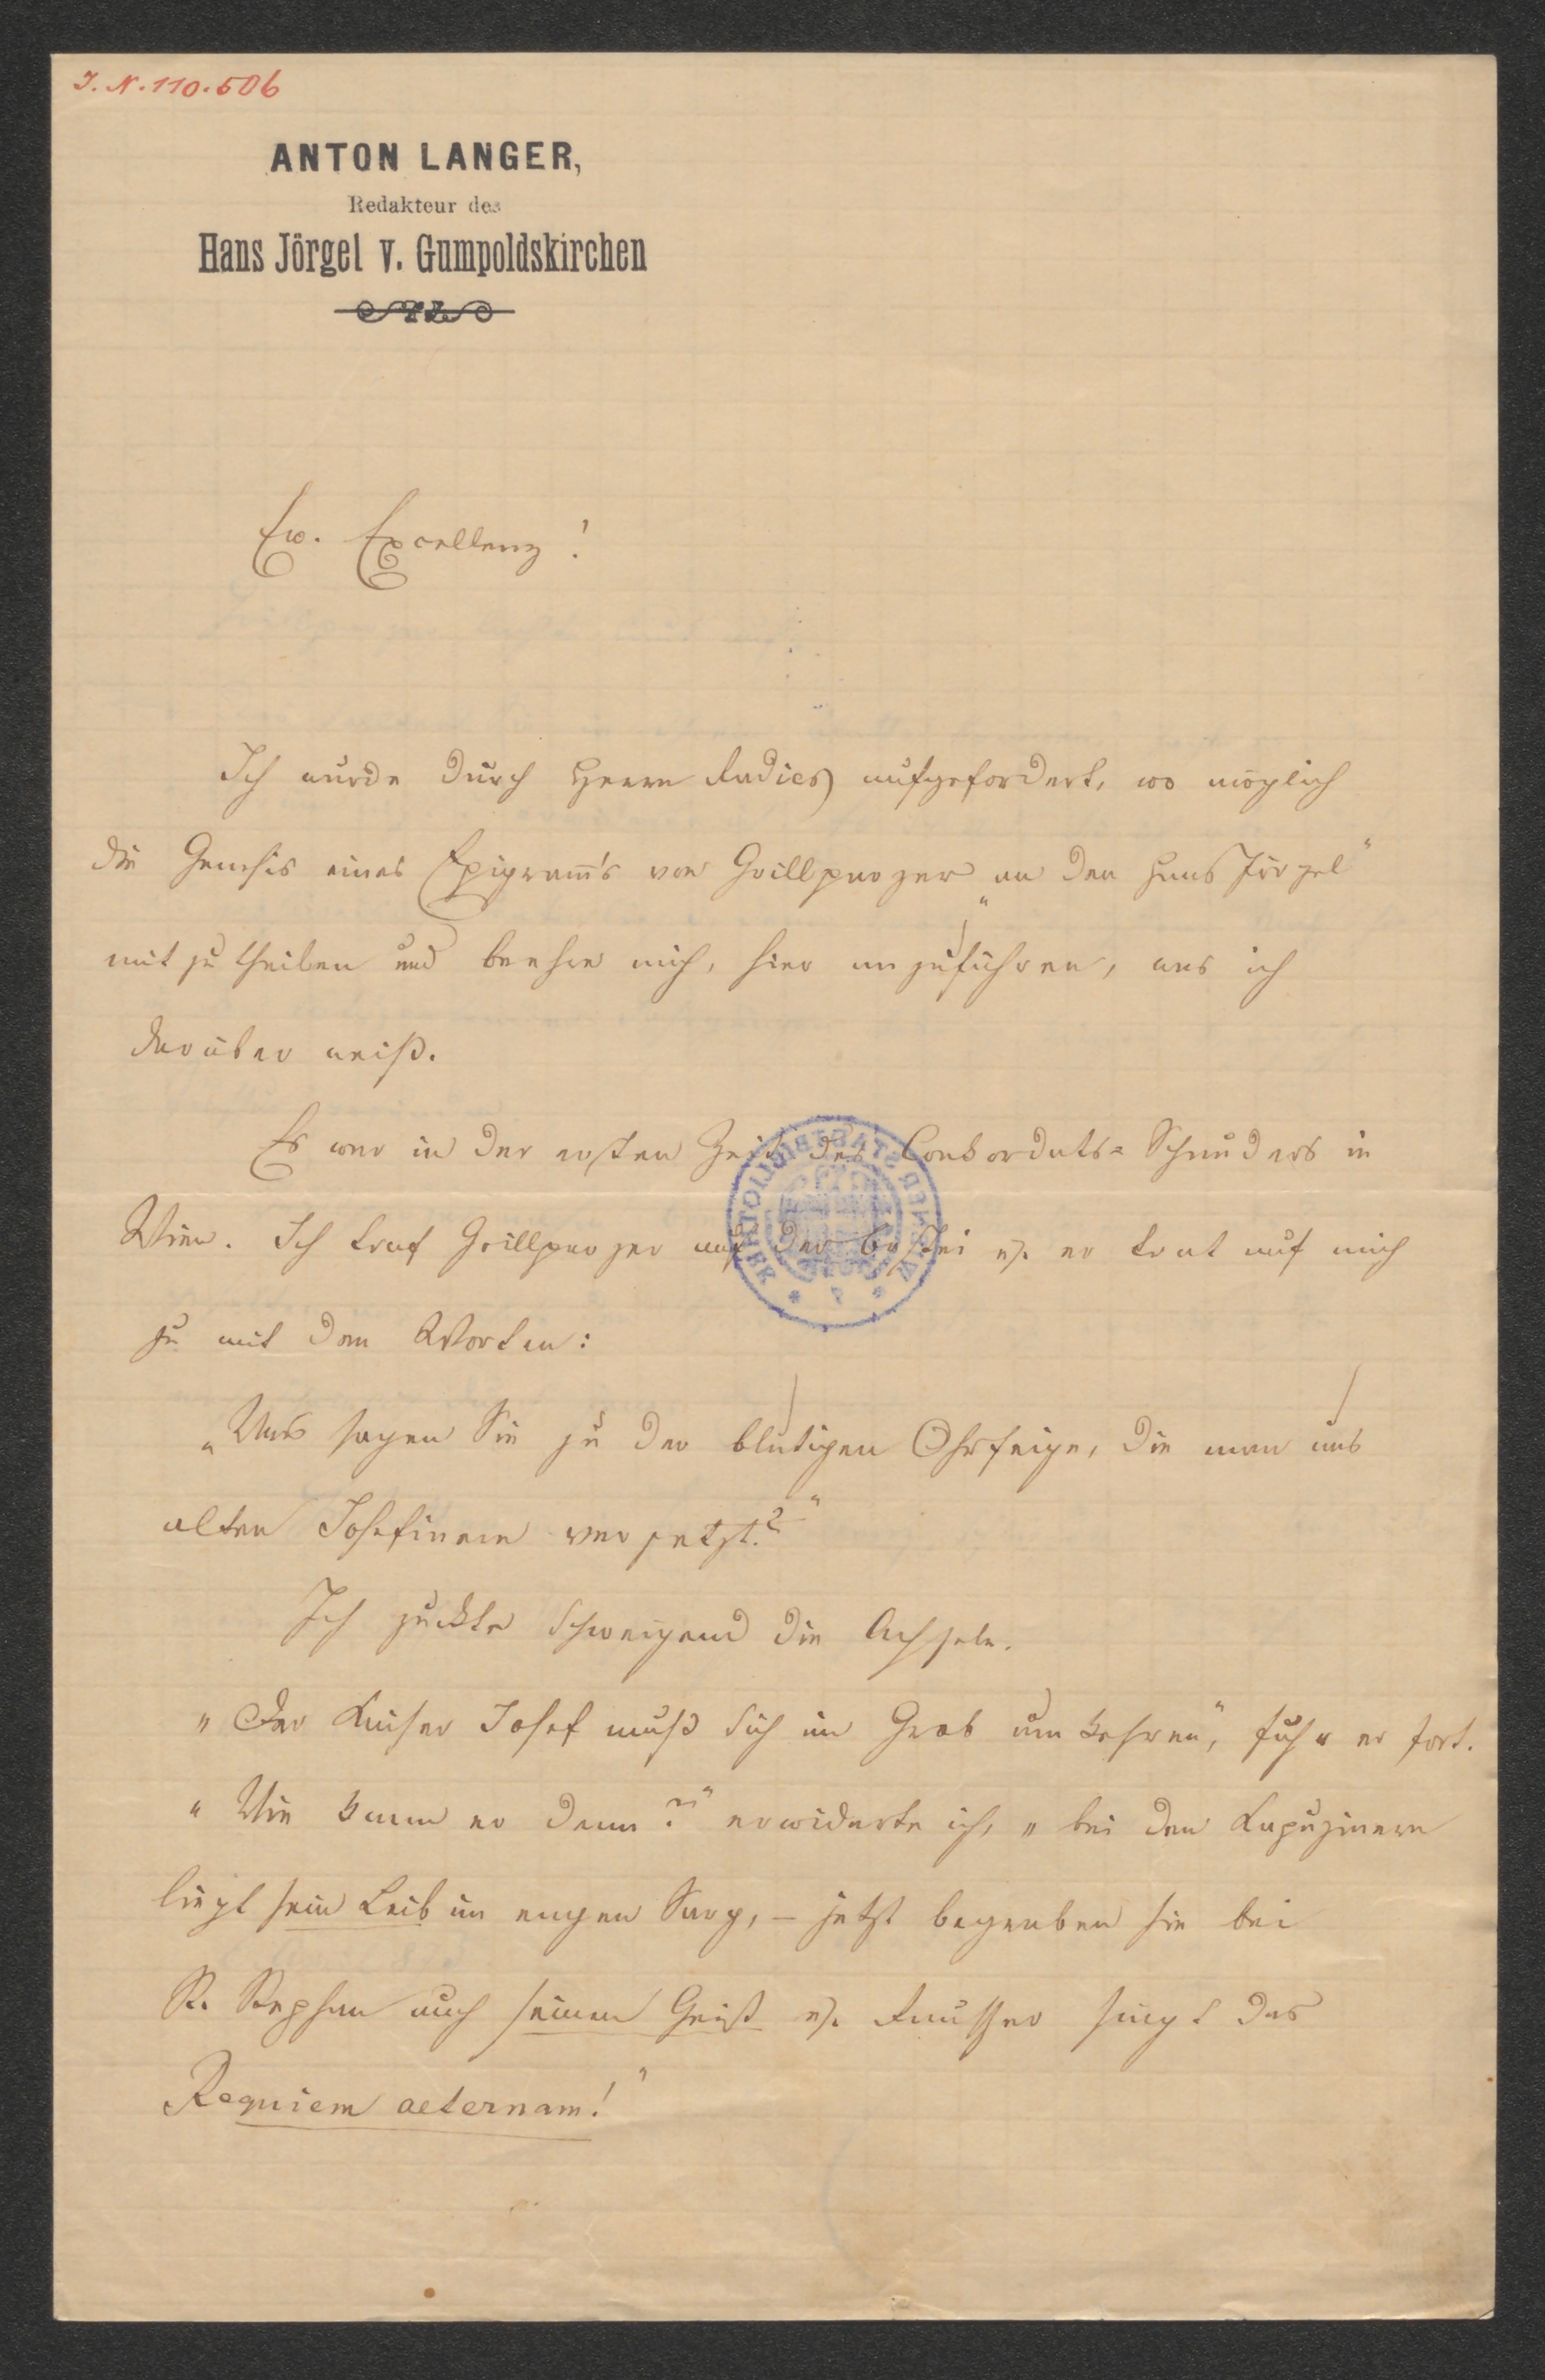 I. N. 110.506
ANTON LANGER,
Redakteur des
Hans Jörgel v. Gumpoldskirchen
Ew. Excellenz!
Ich wurde durch Herrn Radics aufgefordert, wo möglich
die Genesis eines Epigramm's von Grillparzer „an den Hans Jörgel“
mitzutheilen und beehre mich, hier anzuführen, was ich
darüber weiß.
Es war in der ersten Zeit des Conkordats-Schauders in
Wien. Ich traf Grillparzer auf der Bastei u. er trat auf mich
zu mit den Worten:
„Was sagen Sie zu der blutigen Ohrfeige, die man uns
alten Josefinern versetzt?“
Ich zuckte schweigend die Achseln.
„Der Kaiser Josef muß sich im Grab umkehren“, fuhr er fort.
„Wie kann er denn?“ erwiderte ich, „bei den Kapuzinern
liegt sein Leib im engen Sarg, – jetzt begraben sie bei
St. Stephan auch seinen Geist u. Rauscher singt das
Requiem aeternam!“